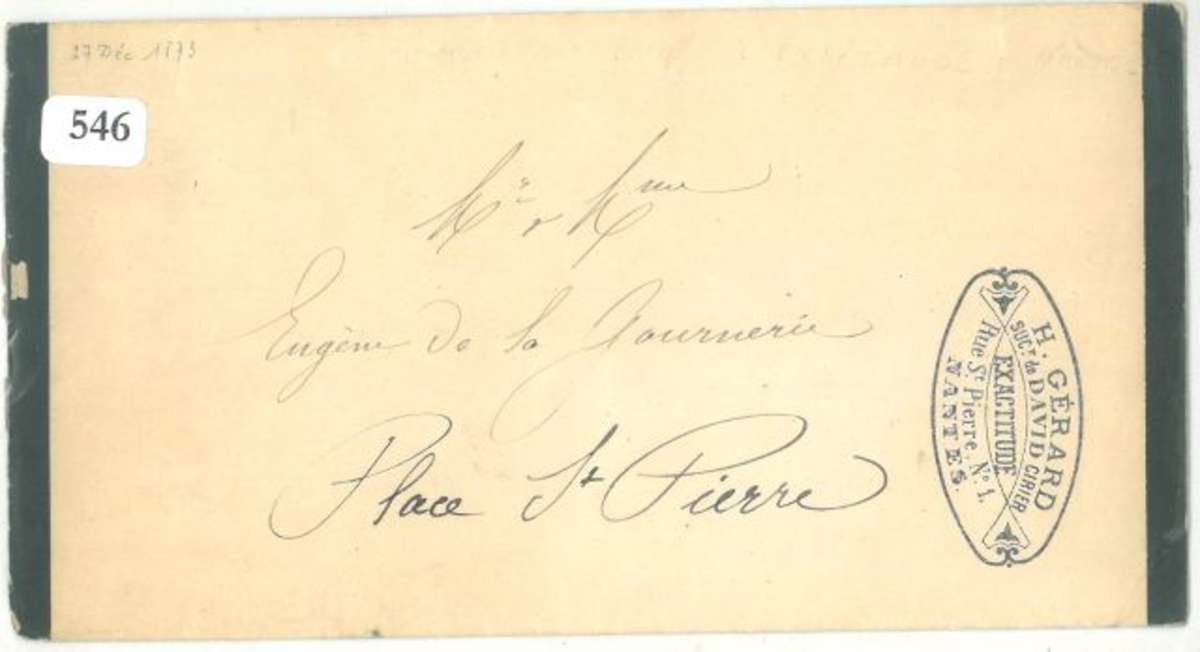 27 Déc 1873
546
Mr & Mme
Eugène de la Gournerie
Place St Pierre
H. GÉRARD
SUCr. de DAVID CIRIER
EXACTITUDE
Rue St. Pierre, No 1.
NANTES.